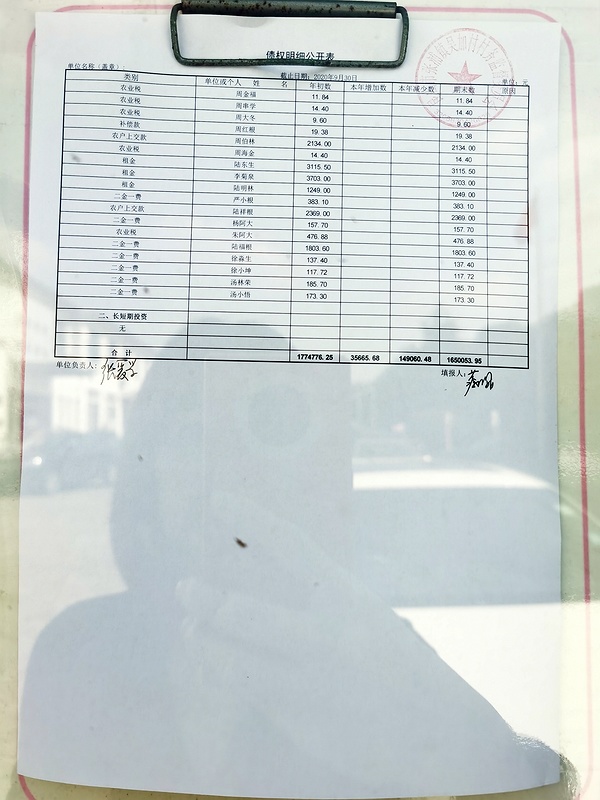 债权明细公开表
单位名称（盖章）： 截止日期：2020年9月30日 单位：元
类别 单位或个人 姓 名 年初数 本年增加数 本年减少数 期末数 原因
农业税 周金福 11.84 11.84
农业税 周串学 14.40 14.40
农业税 周大冬 9.60 9.60
补偿款 周红根 19.38 19.38
农户上交款 周伯林 2134.00 2134.00
农业税 周海金 14.40 14.40
租金 陆东生 3115.50 3115.50
租金 李菊泉 3703.00 3703.00
租金 陆明林 1249.00 1249.00
二金一费 严小根 383.10 383.10
农户上交款 陆祥根 2369.00 2369.00
二金一费 杨阿大 157.70 157.70
农业税 朱阿大 476.88 476.88
二金一费 陆福根 1803.60 1803.60
二金一费 徐森生 137.40 137.40
二金一费 徐小坤 117.72 117.72
二金一费 汤林荣 185.70 185.70
二金一费 汤小悟 173.30 173.30
二、长短期投资
无
合 计 1774776.25 35665.68 149060.48 1650053.95
单位负责人： 填报人：